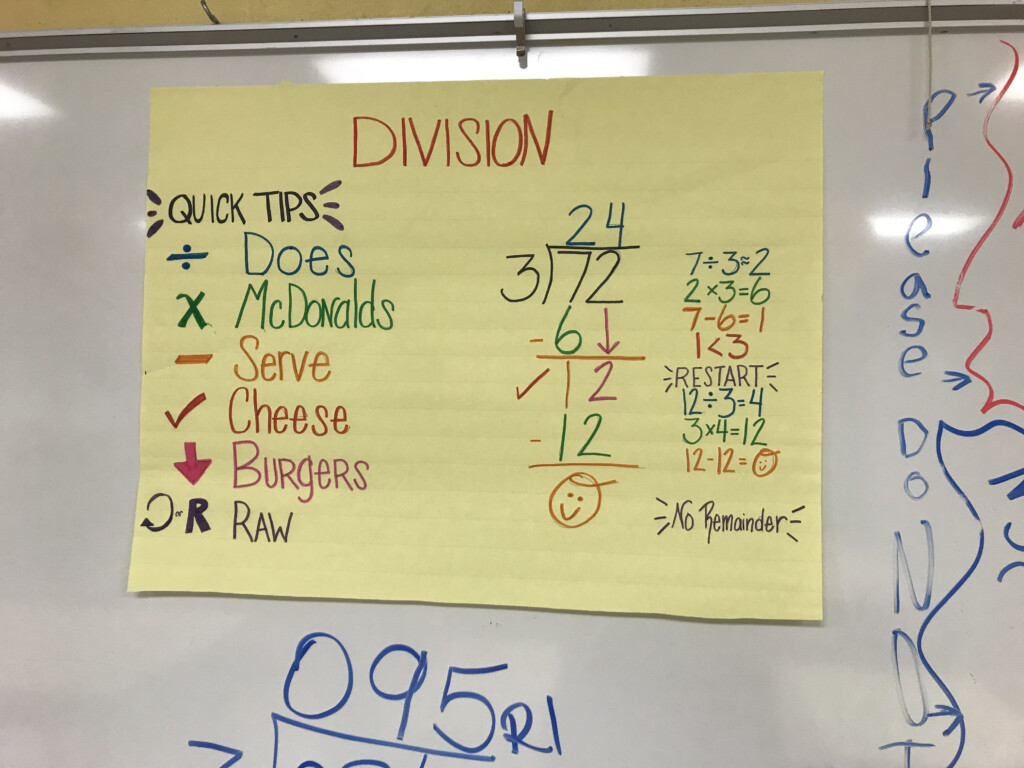 DIVISION
QUICK TIPS
÷ Does
X McDonalds
- Serve
✓ Cheese
↓ Burgers
or R RAW
24
3)72
- 6 ↓
✓ 12
- 12
7÷3≈2
2×3=6
7-6=1
1<3
RESTART
12÷3=4
3×4=12
12-12=
No Remainder
Please Do NOT
095 R1